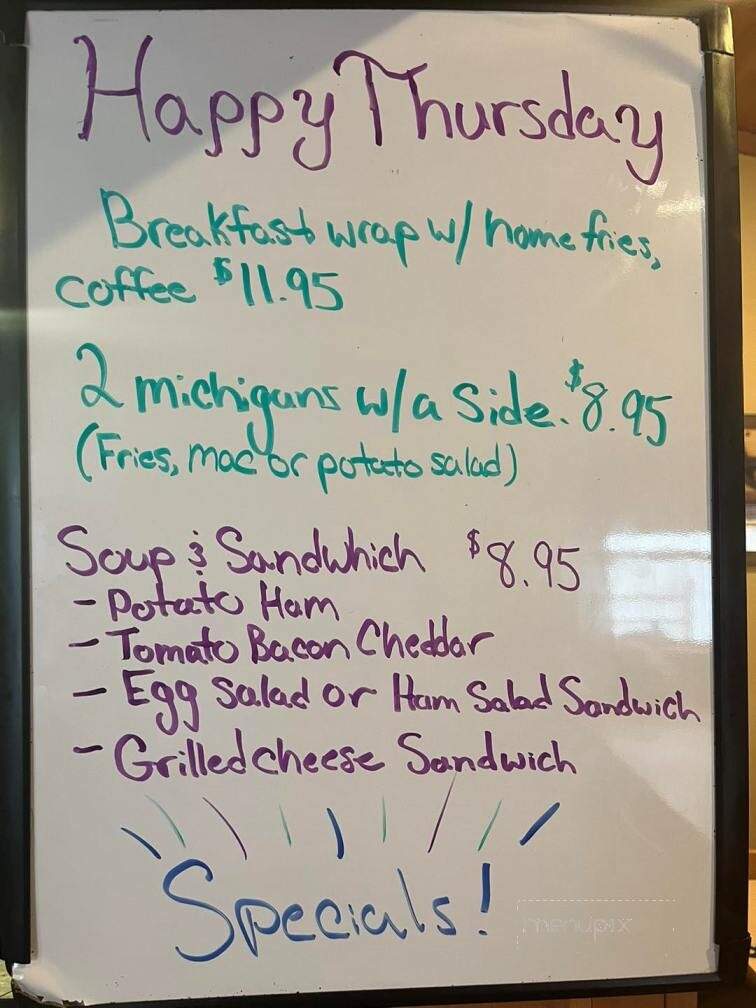 Happy Thursday
Breakfast wrap w/ home fries,
coffee $11.95
2 michigans w/a Side. $8.95
(Fries, mac or potato salad)
Soup & Sandwhich $8.95
- Potato Ham
- Tomato Bacon Cheddar
- Egg Salad or Ham Salad Sandwich
- Grilled cheese Sandwich
Specials!
menupix